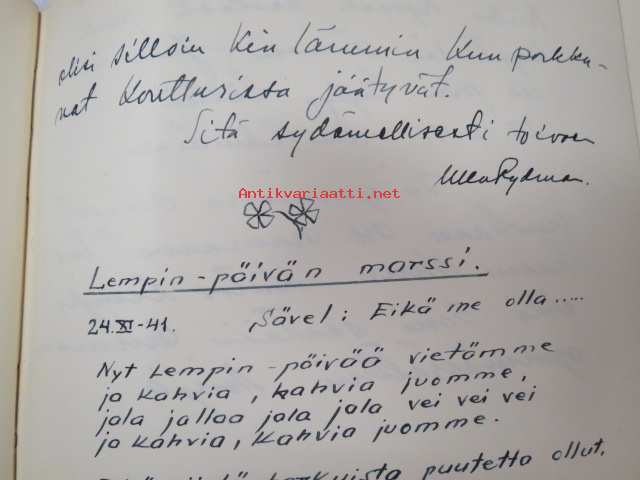 olisi silloin kin lämmin kun porkka-
nat kouttusissa jäätyvät.
Sitä sydämellisesti toivoo
Ulla Rydman.
Antikvariaatti.net
Lempin-päivän marssi.
24.XI-41. Sävel: Eikä me olla.....
Nyt Lempin-päivää vietämme
ja kahvia, kahvia juomme,
jala jallaa jala jala vei vei vei
ja kahvia, kahvia juomme.
puutetta ollut,